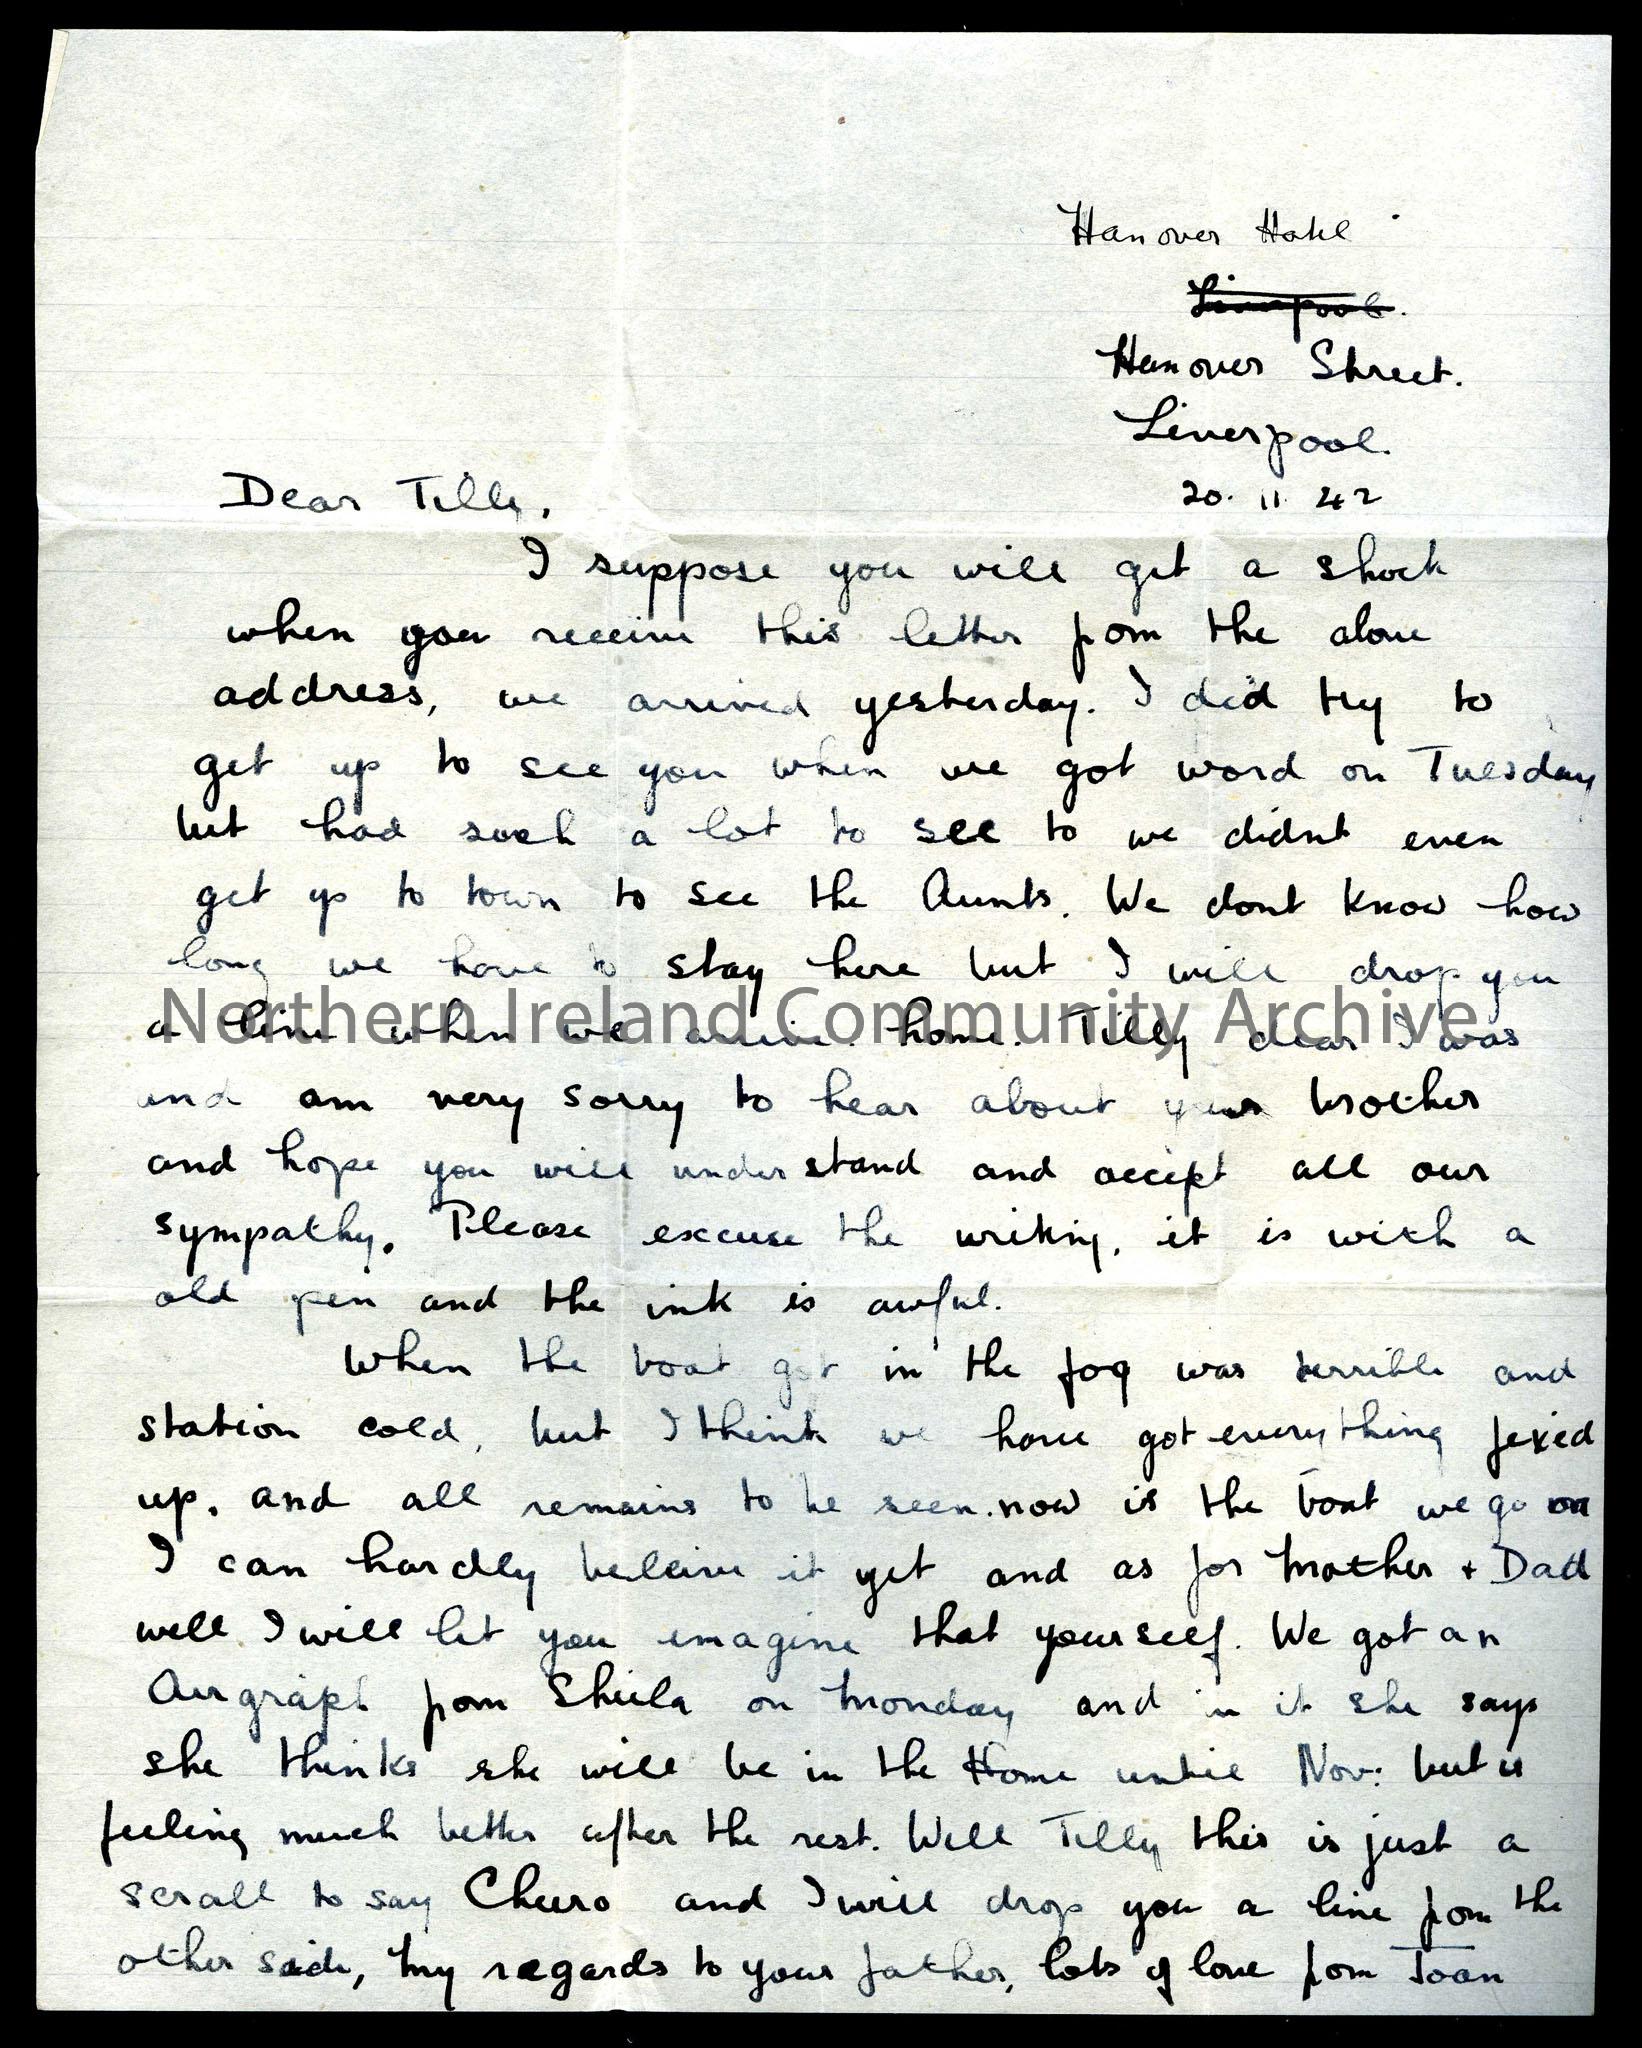 Hanover Hotel
Liverpool.
Hanover Street.
Liverpool.
20. 11. 42
Dear Tilly,
I suppose you will get a shock
when you receive this letter from the above
address, we arrived yesterday. I did try to
get up to see you when we got word on Tuesday
but had such a lot to see to we didnt even
get up to town to see the Aunts. We dont know how
long we have to stay here but I will drop you
a line when we arrive home. Tilly dear I was
Northern Ireland Community Archive
and am very sorry to hear about your brother
and hope you will understand and accept all our
sympathy. Please excuse the writing, it is with a
old pen and the ink is awful.
When the boat got in the fog was terrible and
station cold, but I think we have got everything fixed
up. and all remains to be seen. now is the boat we go on
I can hardly beleive it yet and as for Mother + Dad
well I will let you imagine that yourself. We got an
Airgraph from Sheila on Monday and in it she says
she thinks she will be in the Home until Nov: but is
feeling much better after the rest. Well Tilly this is just a
scrall to say Cheero and I will drop you a line from the
other side, My regards to your father, lots of love from Joan